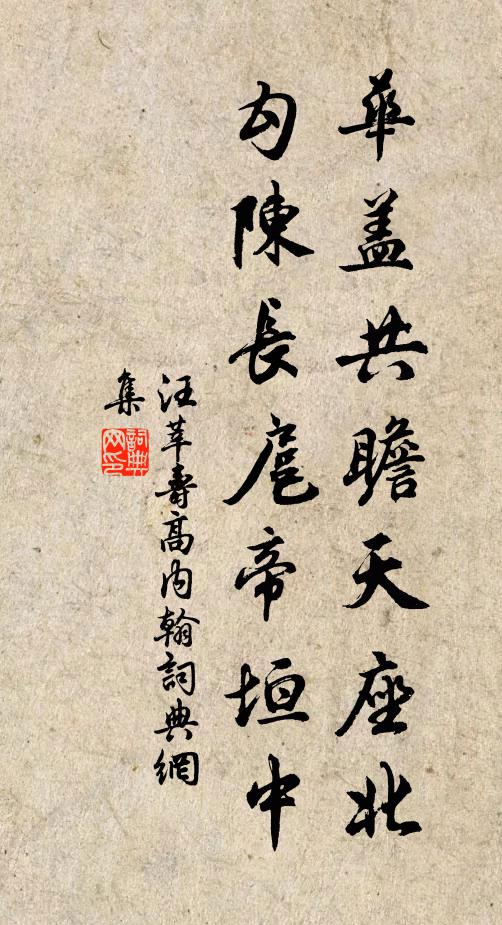 華盖共瞻天座北
勾陳長扈帝垣中
汪莘壽高内翰詞典網
集
詞典網印